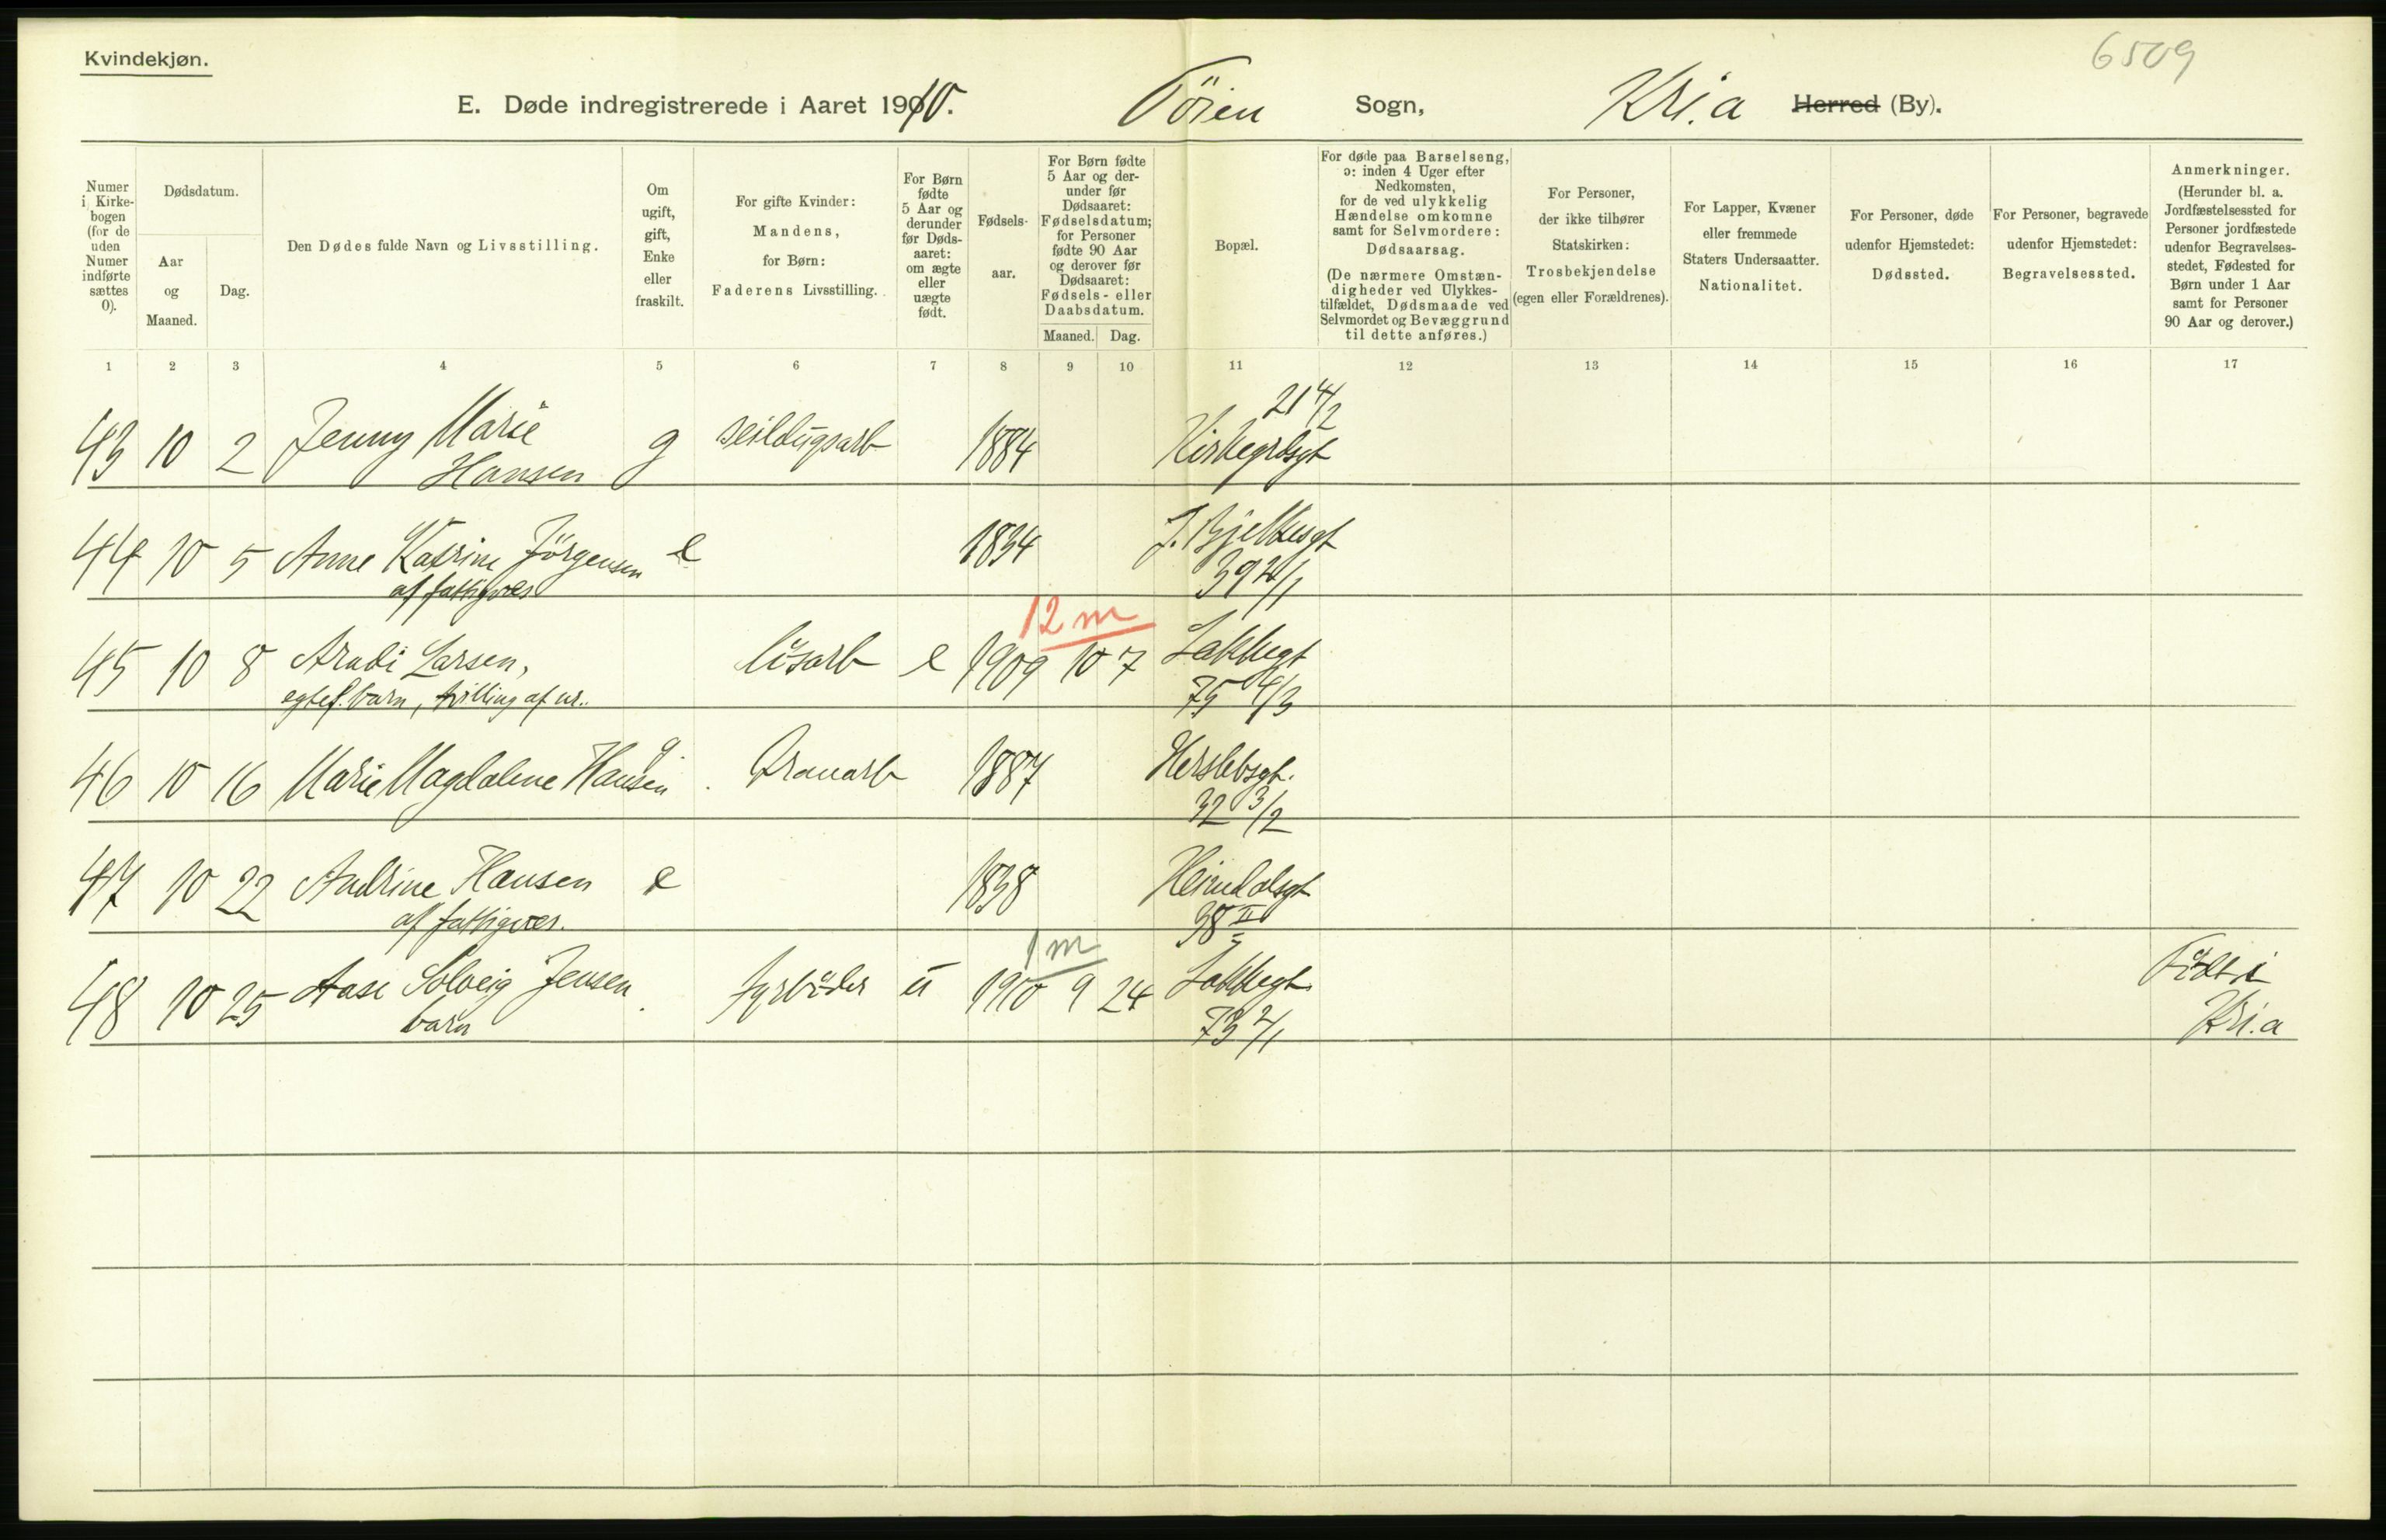 Kvindekjøn.
6509
E. Døde indregistrerede i Aaret 1910. Töien Sogn, Kri.a Herred (By).
Numer i Kirkebogen (for de uden Numer indførte sættes 0).
Dødsdatum.
Aar og Maaned.
Dag.
Den Dødes fulde Navn og Livsstilling.
Om ugift, gift, Enke eller fraskilt.
For gifte Kvinder: Mandens, for Børn: Faderens Livsstilling.
For Børn fødte 5 Aar og derunder før Dødsaaret: om ægte eller uægte født.
Fødselsaar.
For Børn fødte 5 Aar og derunder før Dødsaaret: Fødselsdatum; for Personer fødte 90 Aar og derover før Dødsaaret: Fødsels- eller Daabsdatum.
Maaned. Dag.
Bopæl.
For døde paa Barselseng, ɔ: inden 4 Uger efter Nedkomsten, for de ved ulykkelig Hændelse omkomne samt for Selvmordere: Dødsaarsag.
(De nærmere Omstændigheder ved Ulykkestilfældet, Dødsmaade ved Selvmordet og Bevæggrund til dette anføres.)
For Personer, der ikke tilhører Statskirken: Trosbekjendelse (egen eller Forældrenes).
For Lapper, Kvæner eller fremmede Staters Undersaatter. Nationalitet.
For Personer, døde udenfor Hjemstedet: Dødssted.
For Personer, begravede udenfor Hjemstedet: Begravelsessted.
Anmerkninger.
(Herunder bl. a. Jordfæstelsessted for Personer jordfæstede udenfor Begravelsesstedet, Fødested for Børn under 1 Aar samt for Personer 90 Aar og derover.)
1 2 3 4 5 6 7 8 9 10 11 12 13 14 15 16 17
43 10 2 Jenny Marie Hansen g seildugsarb 1884 Kirkegrdsgt 21 4/2
44 10 5 Anne Katrine Jörgensen e 1834 J. Bjelkesgt
af fattigvæs 39 2/1
12 m
45 10 8 Arndi Larsen, lösarb e 1909 10 7 Lakkegt
egtef. barn, tvilling af nr.. 75 4/3
46 10 16 Marie Magdalene Hansen g. Granarb 1887 Herslebsgt.
32 3/2
47 10 22 Andrine Hansen e 1838 Heimdalsgt
af fattigvæs. 38 II
1 m
48 10 25 Aase Solveig Jensen fyrböder u 1910 9 24 Lakkegt. Född i
barn 73 2/1 Kri.a